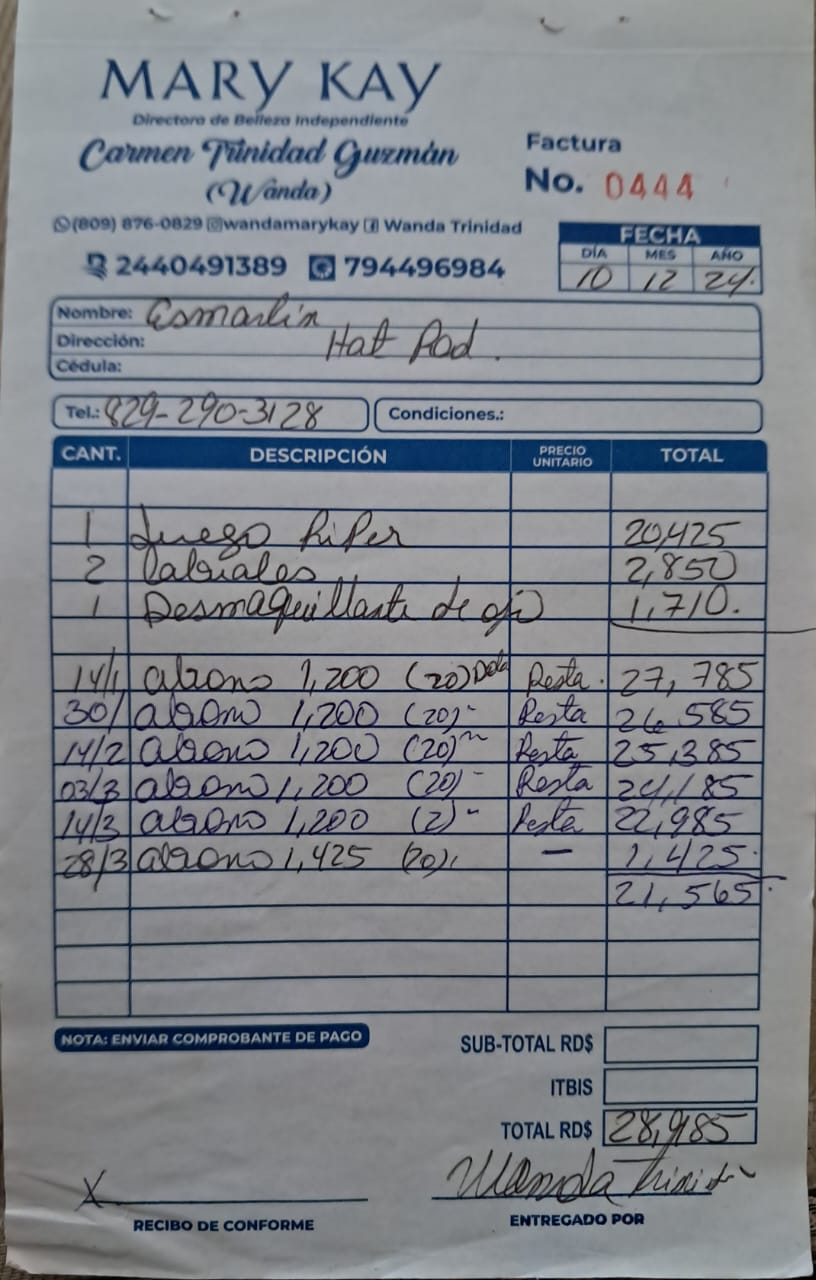 MARY KAY
Directora de Belleza Independiente
Carmen Trinidad Guzmán
(Wanda)
Factura
No. 0444
(809) 876-0829 wandamarykay Wanda Trinidad
2440491389 794496984
FECHA
DÍA MES AÑO
10 12 24.
Nombre: Esmarlin
Dirección: Hat Rod.
Cédula:
Tel.: 829-290-3128 Condiciones.:
CANT. DESCRIPCIÓN PRECIO UNITARIO TOTAL
1 Juego 20,425
2 Labiales 2,850
1 Desmaquillante de ojo 1,710.
14/1 abono 1,200 (20) Dola Resta. 27,785
30/ abono 1,200 (20)- Resta 26,585
14/2 abono 1,200 (20)" Resta 25,385
03/3 abono 1,200 (20)- Resta 24,185
14/3 abono 1,200 (2)- Resta 22,985
28/3 abono 1,425 (20), — 1,425.
21,565.
NOTA: ENVIAR COMPROBANTE DE PAGO
SUB-TOTAL RD$
ITBIS
TOTAL RD$ 28,985
X Wanda Trinidad
RECIBO DE CONFORME ENTREGADO POR